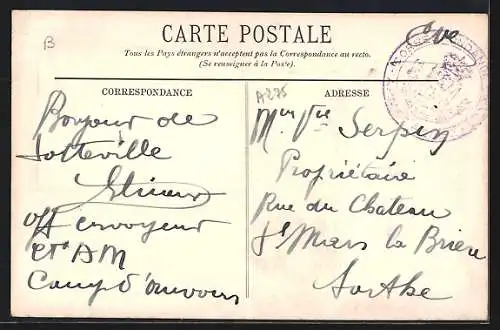 B
CARTE POSTALE
Tous les Pays étrangers n'acceptent pas la Correspondance au recto.
(Se renseigner à la Poste).
CORRESPONDANCE
A275
ADRESSE
Bonjour de
Sotteville
off envoyeur
AM
Camp d'auvours
Mme Vve Serpin
Propriétaire
Rue du Chateau
St Mars la Brière
Sarthe